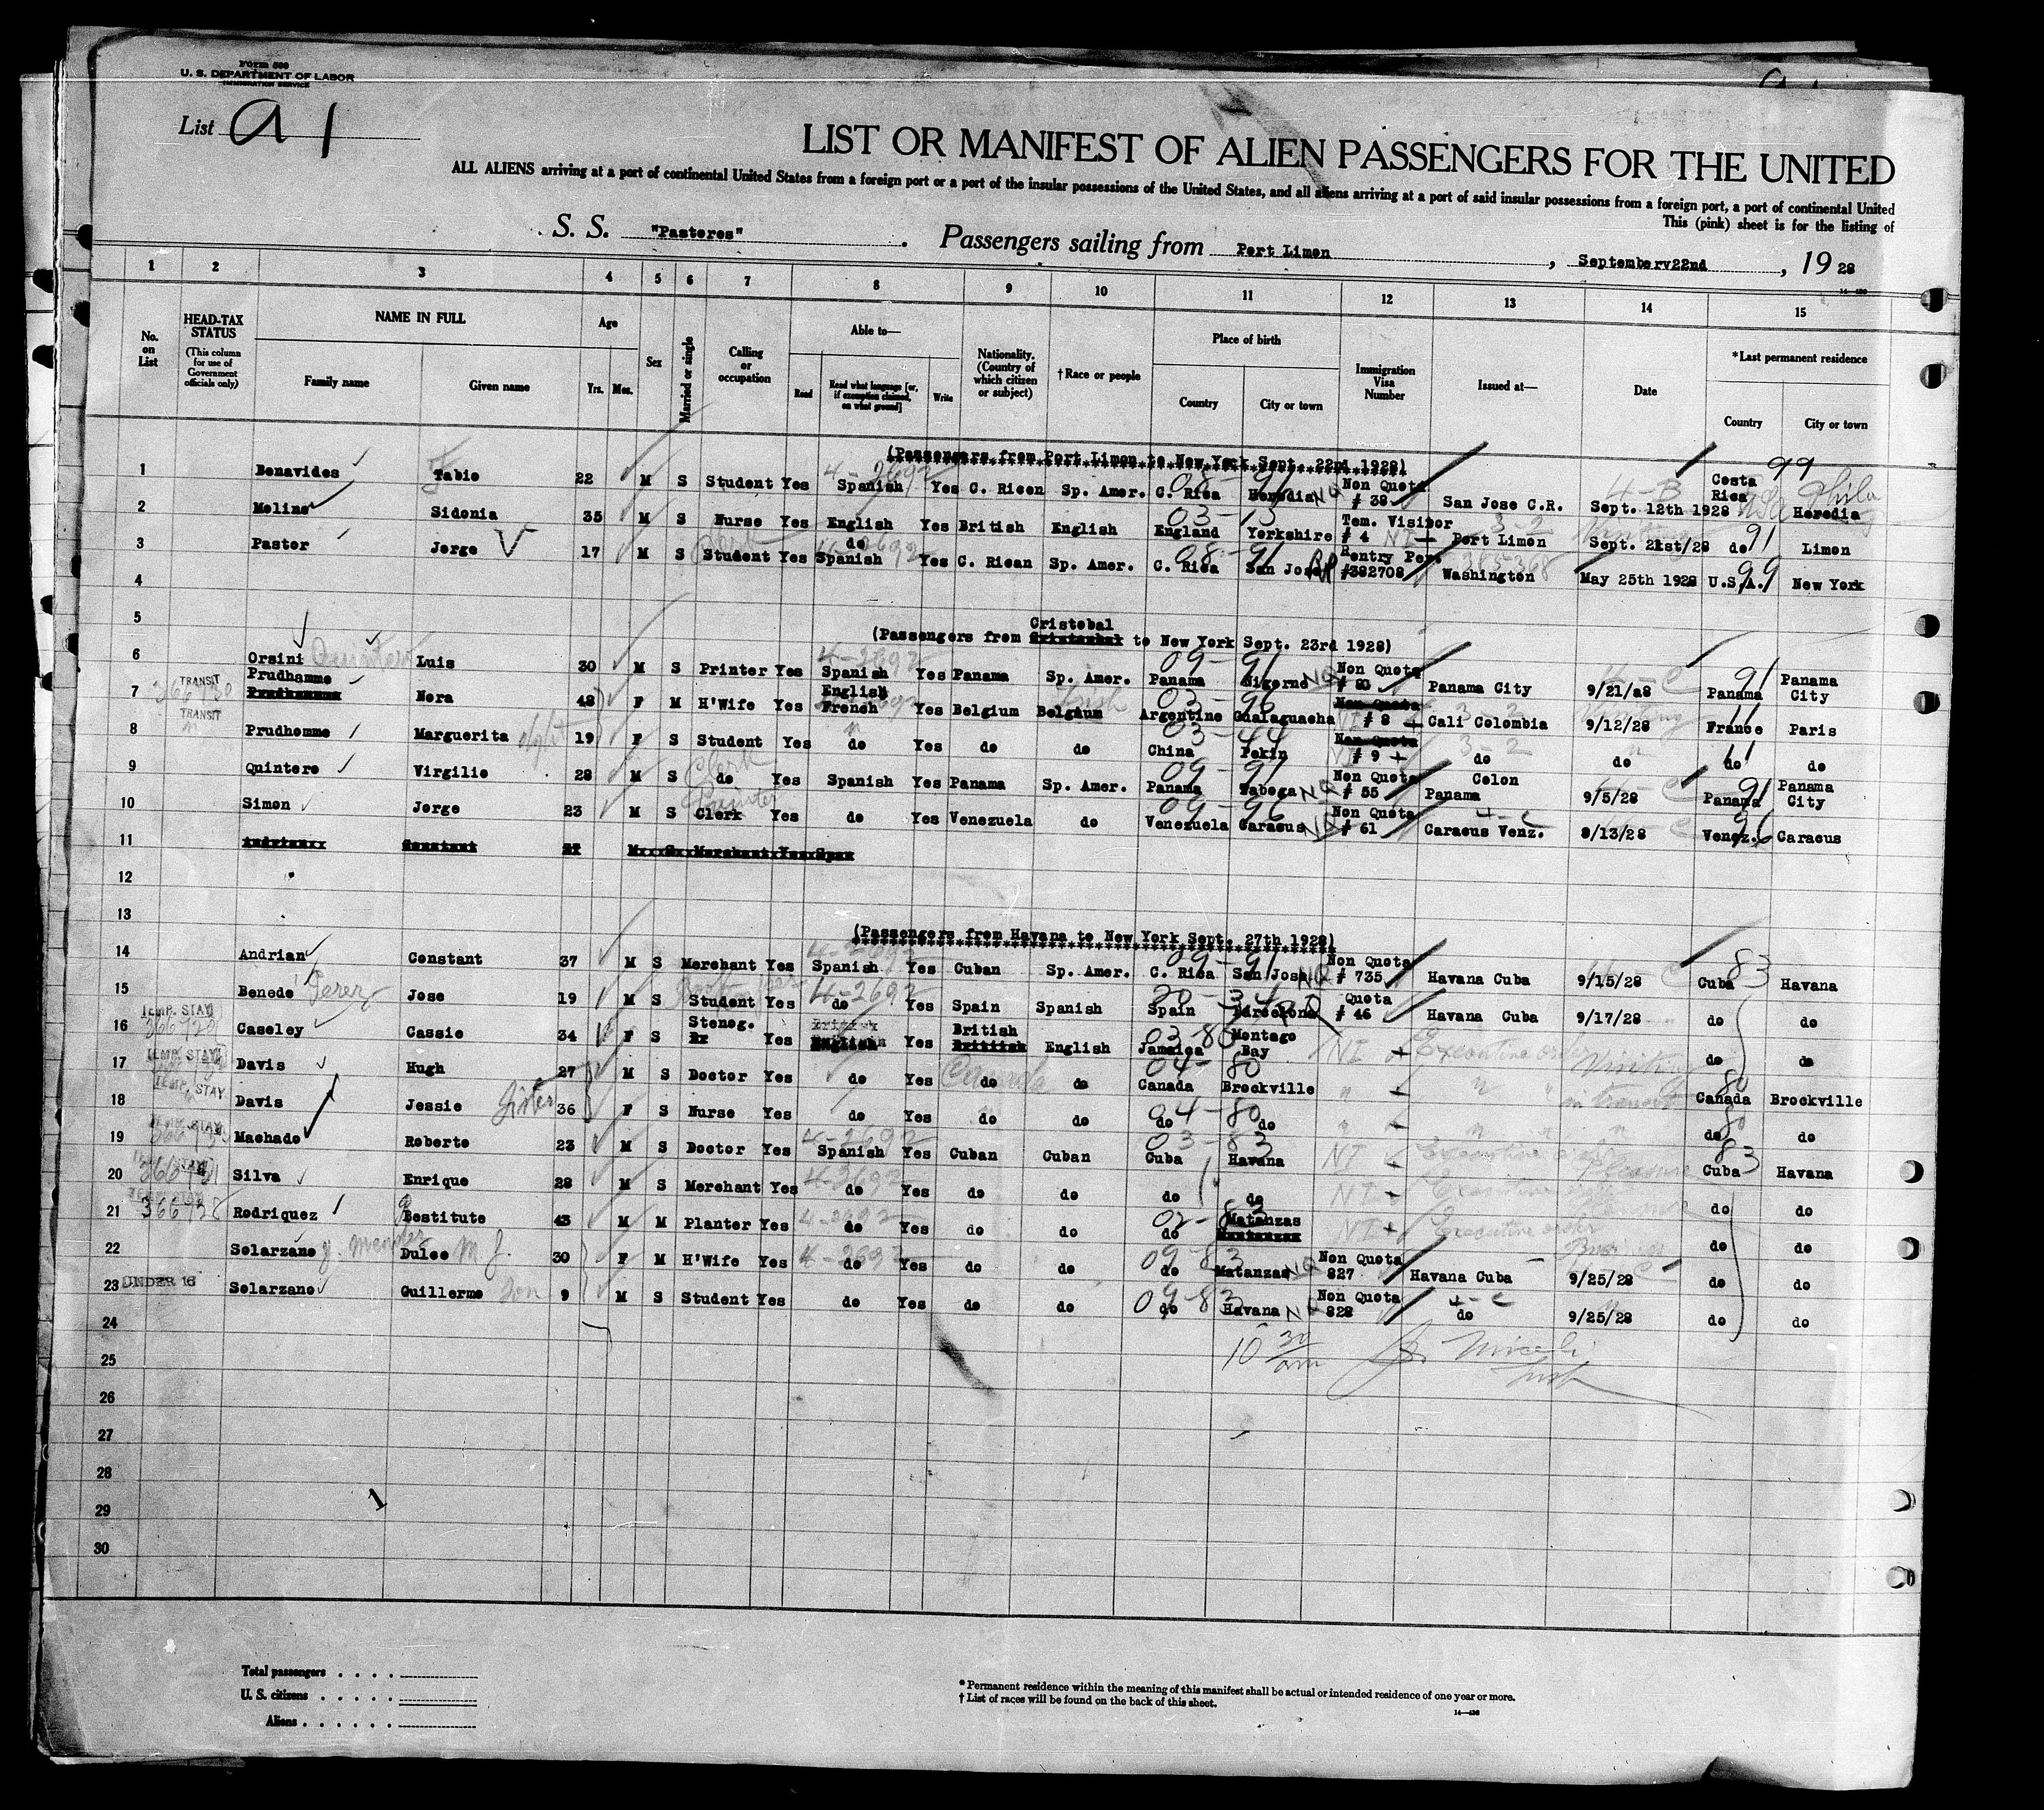 Form 500
U. S. DEPARTMENT OF LABOR
IMMIGRATION SERVICE
List A 1
LIST OR MANIFEST OF ALIEN PASSENGERS FOR THE UNITED
ALL ALIENS arriving at a port of continental United States from a foreign port or a port of the insular possessions of the United States, and all aliens arriving at a port of said insular possessions from a foreign port, a port of continental United
This (pink) sheet is for the listing of
S. S. "Pastores" . Passengers sailing from Port Limon , September 22nd , 19 28
1 2 3 4 5 6 7 8 9 10 11 12 13 14 15
No. on List
HEAD-TAX STATUS (This column for use of Government officials only)
NAME IN FULL Family name Given name
Age Yrs. Mos.
Sex
Married or single
Calling or occupation
Able to— Read Read what language [or, if exemption claimed, on what ground] Write
Nationality. (Country of which citizen or subject)
† Race or people
Place of birth Country City or town
Immigration Visa Number
Issued at—
Date
*Last permanent residence Country City or town
(Passengers from Port Limon to New York Sept. 22rd 1928)
1 Benavides Tabio 22 M S Student Yes Spanish Yes C. Ricen Sp. Amer. C. Rica Heredia Non Quota # 38 San Jose C.R. Sept. 12th 1928 Costa Rica Heredia
2 Molino Sidonia 35 M S Nurse Yes English Yes British English England Yorkshire Tem. Visitor # 4 Port Limon Sept. 21st/28 do Limon
3 Pastor Jorge 17 M S Student Yes Spanish Yes C. Rican Sp. Amer. C. Rica San Jose Rentry Per. #382708 Washington May 25th 1928 U.S.A. New York
4
5
(Passengers from Cristobal to New York Sept. 23rd 1928)
6 Orsini Luis 30 M S Printer Yes Spanish Yes Panama Sp. Amer. Panama Non Quota # 80 Panama City 9/21/28 Panama Panama City
TRANSIT
7 Prudhamme Nora 48 F M H'Wife Yes English French Yes Belgium Belgium Argentine Gualaguacha # 8 Cali Colombia 9/12/28 France Paris
TRANSIT
8 Prudhomme Marguerita 19 F S Student Yes do Yes do do China Pekin # 9 do do do do
9 Quintero Virgilio 28 M S do Yes Spanish Yes Panama Sp. Amer. Panama Taboga Non Quota # 55 Colon Panama 9/5/28 Panama Panama City
10 Simon Jorge 23 M S Clerk Yes do Yes Venezuela do Venezuela Caracus Non Quota # 61 Caracus Venz. 9/13/28 Venez. Caracus
11
12
13
(Passengers from Havana to New York Sept. 27th 1928)
14 Andrian Constant 37 M S Merchant Yes Spanish Yes Cuban Sp. Amer. C. Rica San Jose Non Quota # 735 Havana Cuba 9/15/28 Cuba Havana
15 Benedo Jose 19 M S Student Yes do Yes Spain Spanish Spain Barcelona Quota # 46 Havana Cuba 9/17/28 do do
TEMP. STAY
16 Caseley Cassie 34 F S Stenog. Yes English Yes British English Jamaica Montego Bay do do
TEMP. STAY
17 Davis Hugh 27 M S Doctor Yes do Yes do Canada do Canada Brockville Canada Brockville
TEMP. STAY
18 Davis Jessie Sister 36 F S Nurse Yes do Yes do do do do do do
TEMP. STAY
19 Machado Roberto 23 M S Doctor Yes Spanish Yes Cuban Cuban Cuba Havana Cuba Havana
20 Silva Enrique 28 M S Merchant Yes do Yes do do do do do do
21 Rodriquez Restitute 43 M M Planter Yes do Yes do do do Matanzas do do
22 Solarzano Dulce M. J. 30 F M H'Wife Yes do Yes do do do Matanzas Non Quota 827 Havana Cuba 9/25/28 do do
UNDER 16
23 Solarzano Guillermo Son 9 M S Student Yes do Yes do do do Havana Non Quota 828 do 9/25/28 do do
24
10 30 am
25
26
27
28
29
30
1
Total passengers . . . .
U. S. citizens . . . . .
Aliens . . . . . .
* Permanent residence within the meaning of this manifest shall be actual or intended residence of one year or more.
† List of races will be found on the back of this sheet.
14—436